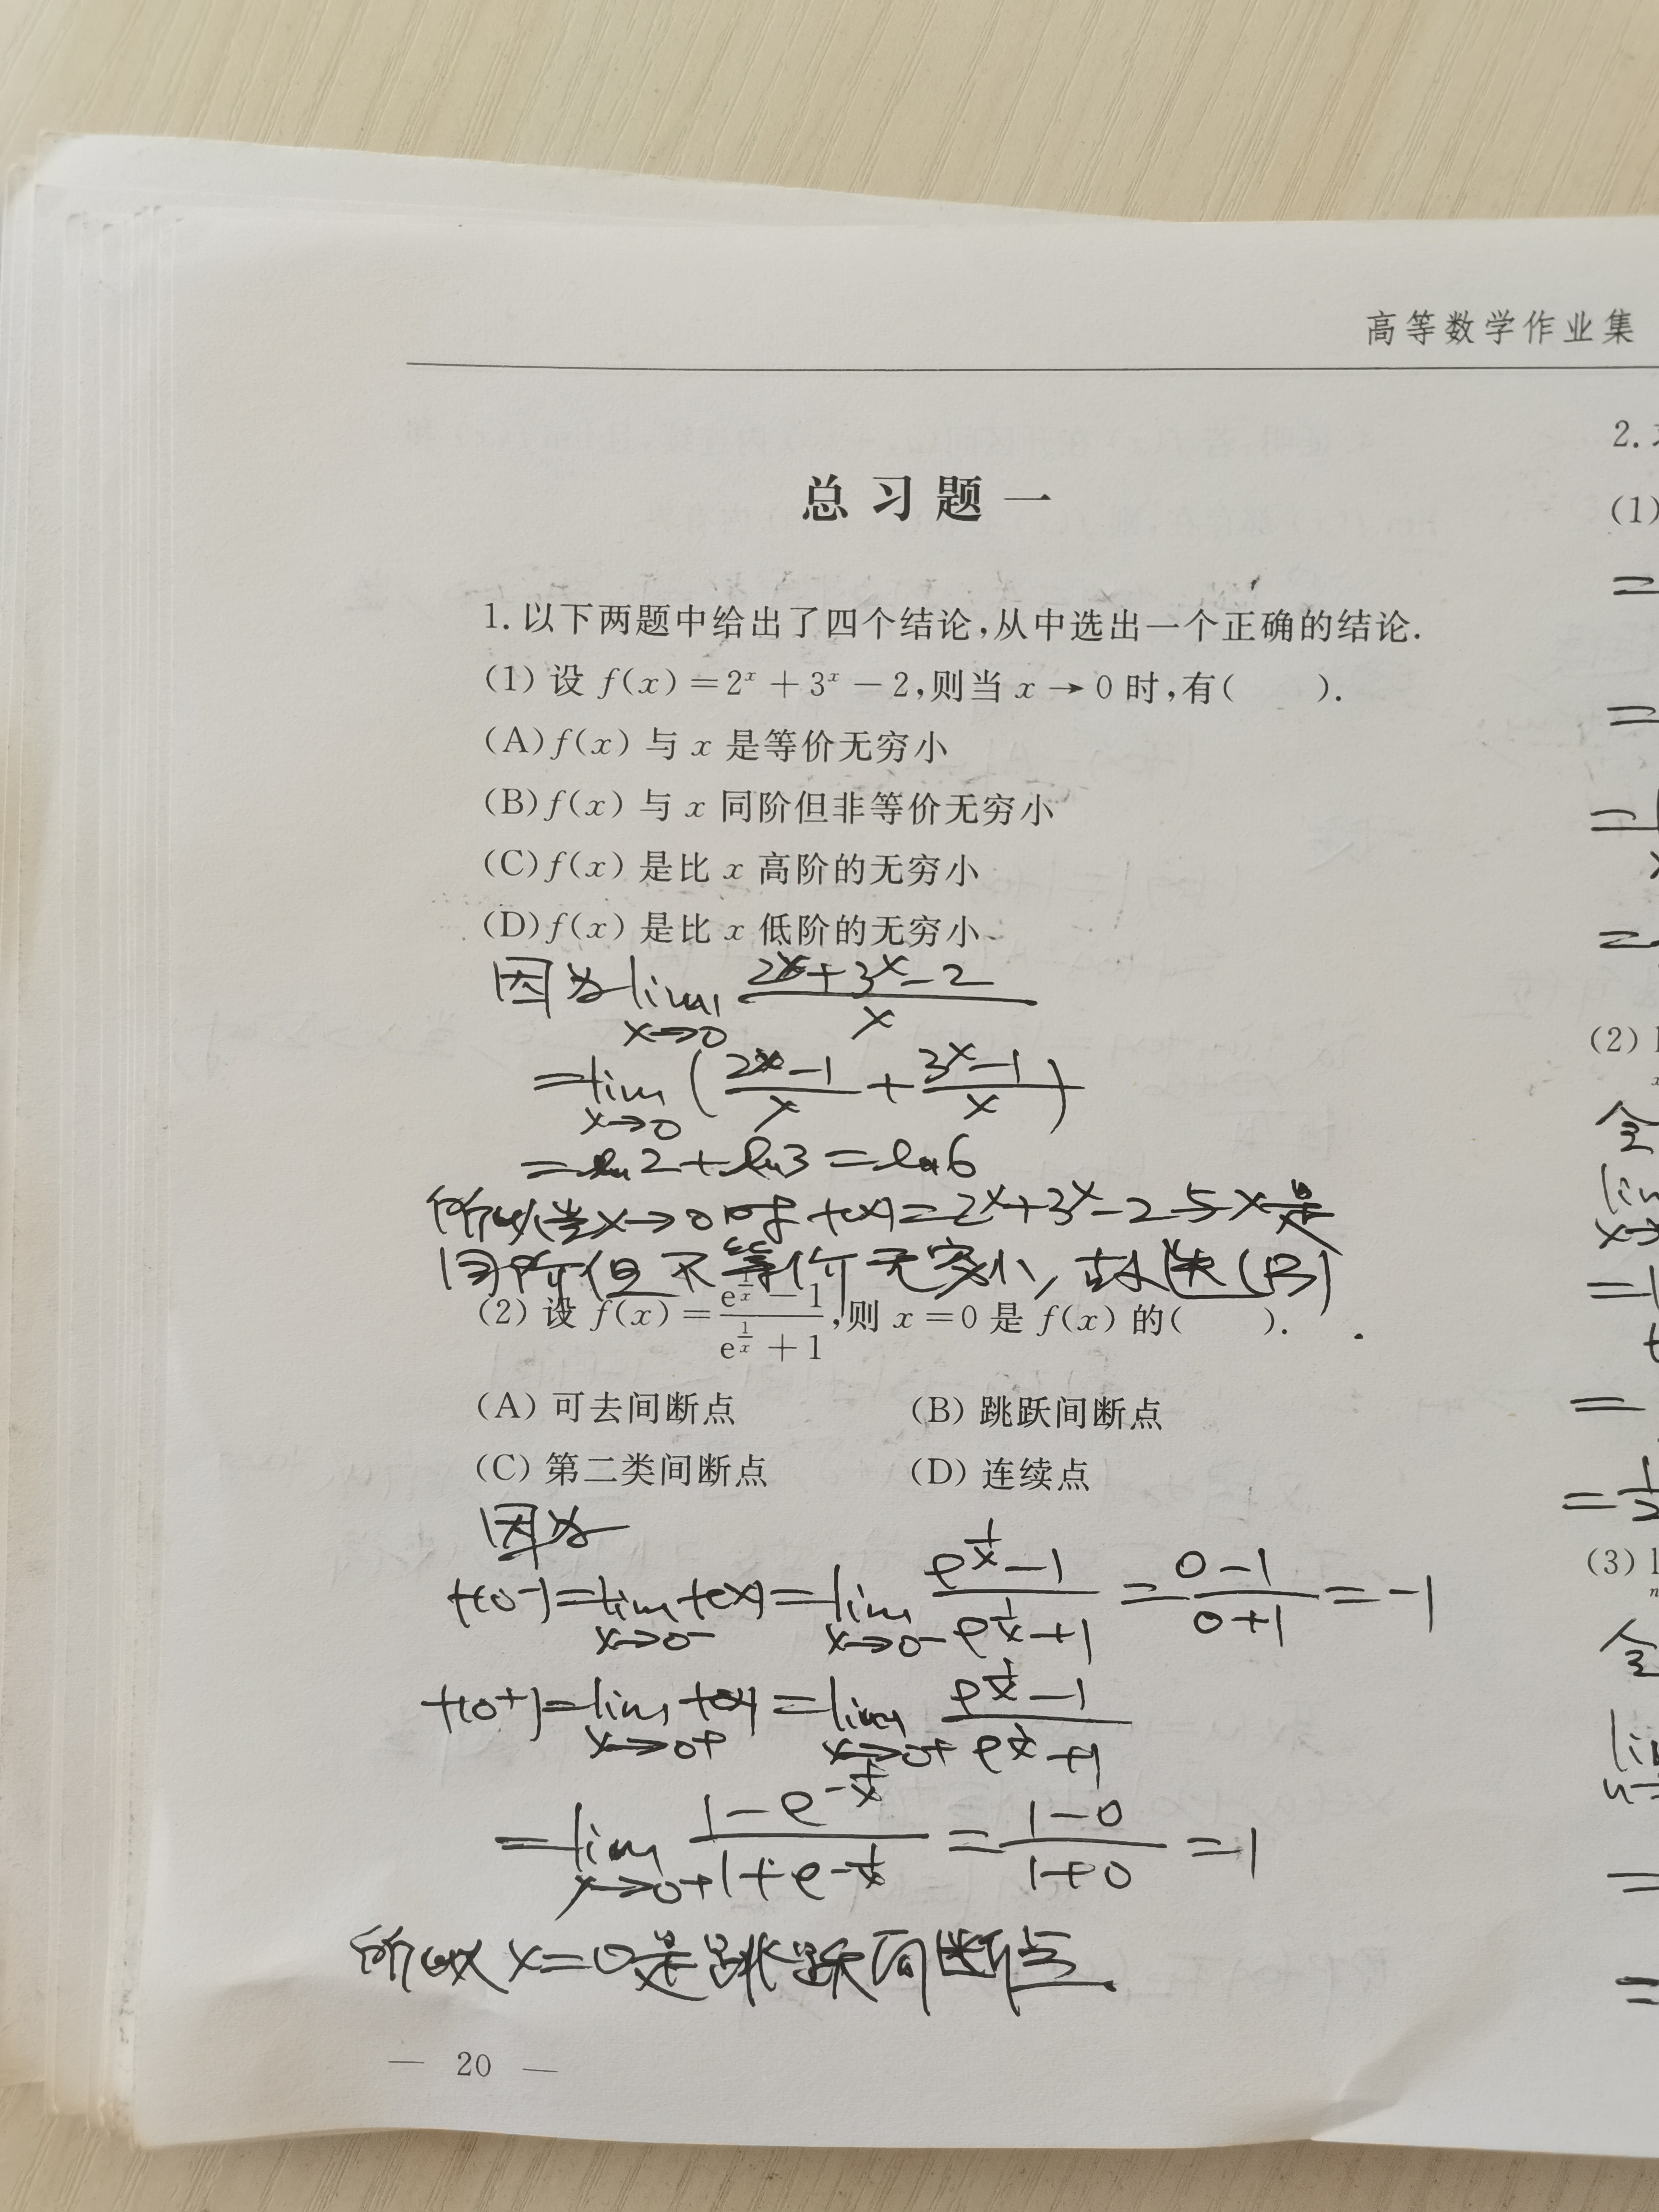 高等数学作业集
总习题一
1. 以下两题中给出了四个结论,从中选出一个正确的结论.
(1) 设 f(x)=2ˣ+3ˣ-2,则当 x→0 时,有(　　).
(A) f(x) 与 x 是等价无穷小
(B) f(x) 与 x 同阶但非等价无穷小
(C) f(x) 是比 x 高阶的无穷小
(D) f(x) 是比 x 低阶的无穷小
因为 lim_{x→0} (2ˣ+3ˣ-2)/x
=lim_{x→0} ((2ˣ-1)/x + (3ˣ-1)/x)
=ln2+ln3=ln6
所以当x→0时 f(x)=2ˣ+3ˣ-2与x是
同阶但不等价无穷小,故选(B)
(2) 设 f(x)=(e^{1/x}-1)/(e^{1/x}+1),则 x=0 是 f(x) 的(　　).
(A) 可去间断点 (B) 跳跃间断点
(C) 第二类间断点 (D) 连续点
因为
f(0⁻)=lim_{x→0⁻} f(x)=lim_{x→0⁻} (e^{1/x}-1)/(e^{1/x}+1)=(0-1)/(0+1)=-1
f(0⁺)=lim_{x→0⁺} f(x)=lim_{x→0⁺} (e^{1/x}-1)/(e^{1/x}+1)
=lim_{x→0⁺} (1-e^{-1/x})/(1+e^{-1/x})=(1-0)/(1+0)=1
所以 x=0是跳跃间断点.
— 20 —
2.
(1)
=
=
=
=
(2)
=
=
(3)
=
=